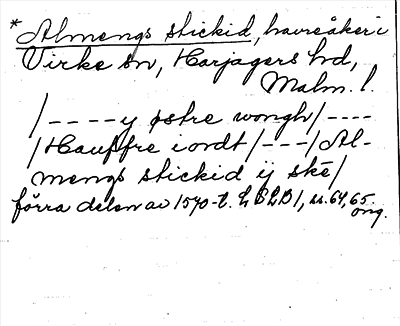 *Almengs stickid, havreåker i
Virke sn, Harjagers hd,
Malm. l.
/----y østre wongh/----
/Hauffre iordt/---/Al-
mengs stickid ij skē/
förra delen av 1570-t. LSLB1, ss. 64, 65.
ong.